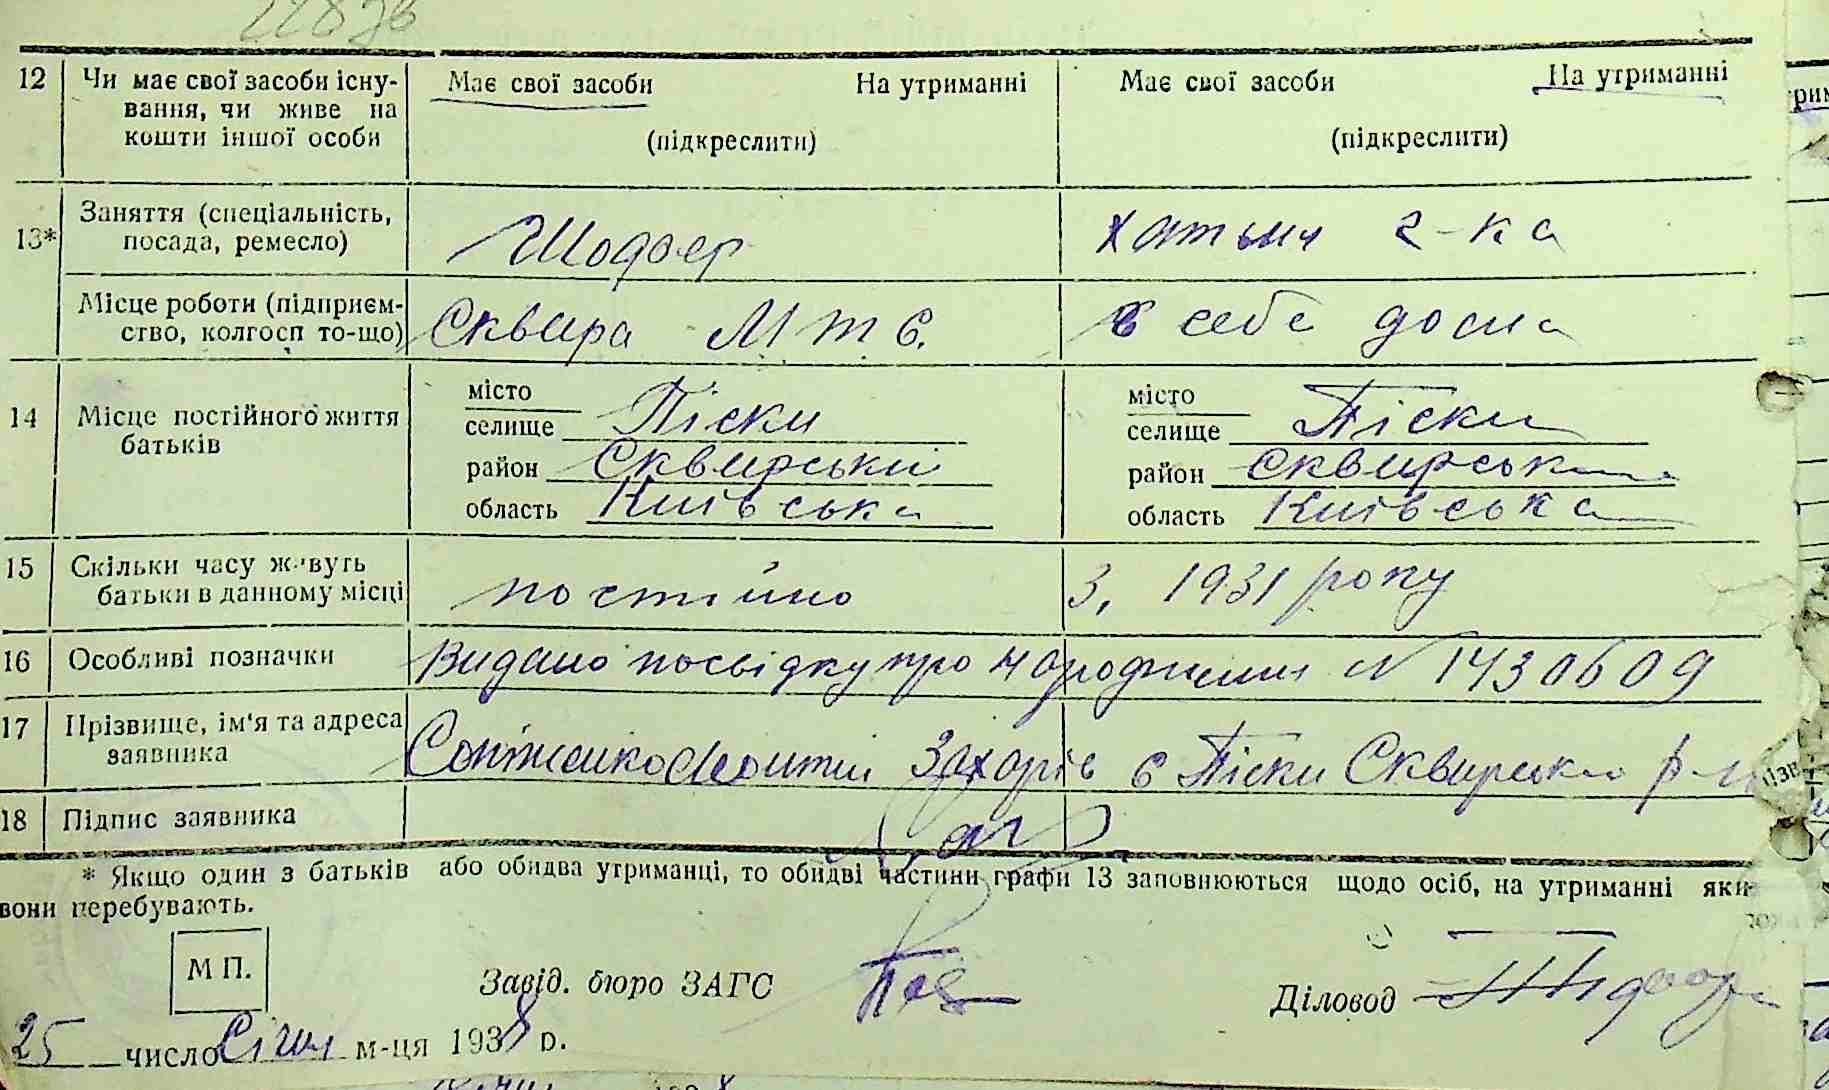 12 Чи має свої засоби існу- Має свої засоби На утриманні Має свої засоби На утриманні
вання, чи живе на
кошти іншої особи (підкреслити) (підкреслити)
13* Заняття (спеціальність, Шофер хатня г-ка
посада, ремесло)
Місце роботи (підприєм- Сквира МТС. в себе дома
ство, колгосп то-що)
14 Місце постійного життя місто місто
батьків селище Піски селище Піски
район Сквирський район Сквирськ
область Київська область Київська
15 Скільки часу живуть постійно З. 1931 року
батьки в данному місці
16 Особливі позначки Видано посвідку про народження N 1430609
17 Прізвище, ім'я та адреса Захарів с Піски Сквирськ р-н
заявника
18 Підпис заявника
* Якщо один з батьків або обидва утриманці, то обидві частини графи 13 заповнюються щодо осіб, на утриманні яких
вони перебувають.
М П.
Завід. бюро ЗАГС Діловод
25 число Січня м-ця 1938 р.